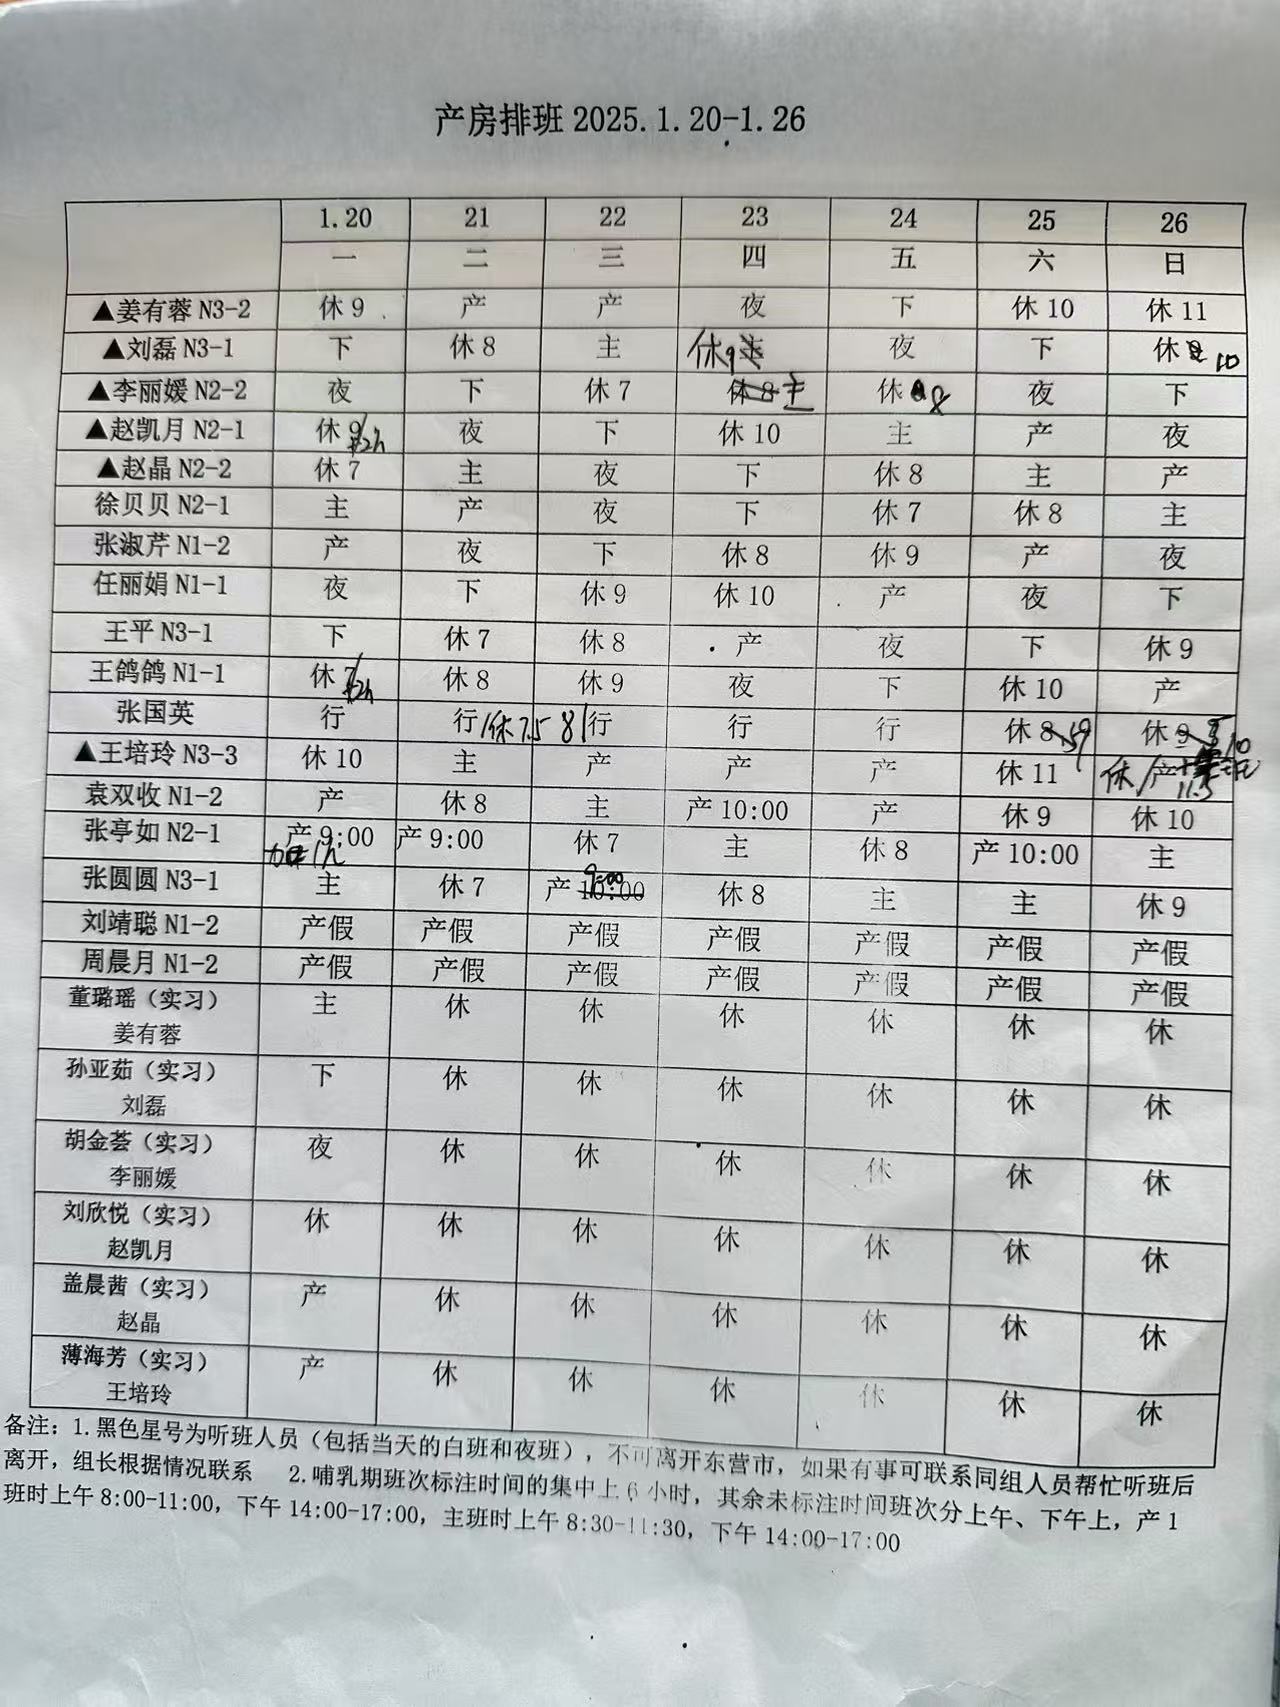 产房排班 2025.1.20-1.26
1.20 21 22 23 24 25 26
一 二 三 四 五 六 日
▲姜有蓉 N3-2 休 9 产 产 夜 下 休 10 休 11
▲刘磊 N3-1 下 休 8 主 休9 主 夜 下 休 10
▲李丽媛 N2-2 夜 下 休 7 休 8 主 休 8 夜 下
▲赵凯月 N2-1 休 9 +2h 夜 下 休 10 主 产 夜
▲赵晶 N2-2 休 7 主 夜 下 休 8 主 产
徐贝贝 N2-1 主 产 夜 下 休 7 休 8 主
张淑芹 N1-2 产 夜 下 休 8 休 9 产 夜
任丽娟 N1-1 夜 下 休 9 休 10 产 夜 下
王平 N3-1 下 休 7 休 8 产 夜 下 休 9
王鸽鸽 N1-1 休 7 +2h 休 8 休 9 夜 下 休 10 产
张国英 行 行/休 7.5 8/行 行 行 休 8 休 9
▲王培玲 N3-3 休 10 主 产 产 产 休 11 休/产 11.5
袁双收 N1-2 产 休 8 主 产 10:00 产 休 9 休 10
张亭如 N2-1 产 9:00 加1h 产 9:00 休 7 主 休 8 产 10:00 主
张圆圆 N3-1 主 休 7 产 10:00 9:00 休 8 主 主 休 9
刘靖聪 N1-2 产假 产假 产假 产假 产假 产假 产假
周晨月 N1-2 产假 产假 产假 产假 产假 产假 产假
董璐瑶（实习） 主 休 休 休 休 休 休
姜有蓉
孙亚茹（实习） 下 休 休 休 休 休 休
刘磊
胡金荟（实习） 夜 休 休 休 休 休 休
李丽媛
刘欣悦（实习） 休 休 休 休 休 休 休
赵凯月
盖晨茜（实习） 产 休 休 休 休 休 休
赵晶
薄海芳（实习） 产 休 休 休 休 休 休
王培玲
备注：1.黑色星号为听班人员（包括当天的白班和夜班），不可离开东营市，如果有事可联系同组人员帮忙听班后
离开，组长根据情况联系 2.哺乳期班次标注时间的集中上 6 小时，其余未标注时间班次分上午、下午上，产 1
班时上午 8:00-11:00，下午 14:00-17:00，主班时上午 8:30-11:30，下午 14:00-17:00